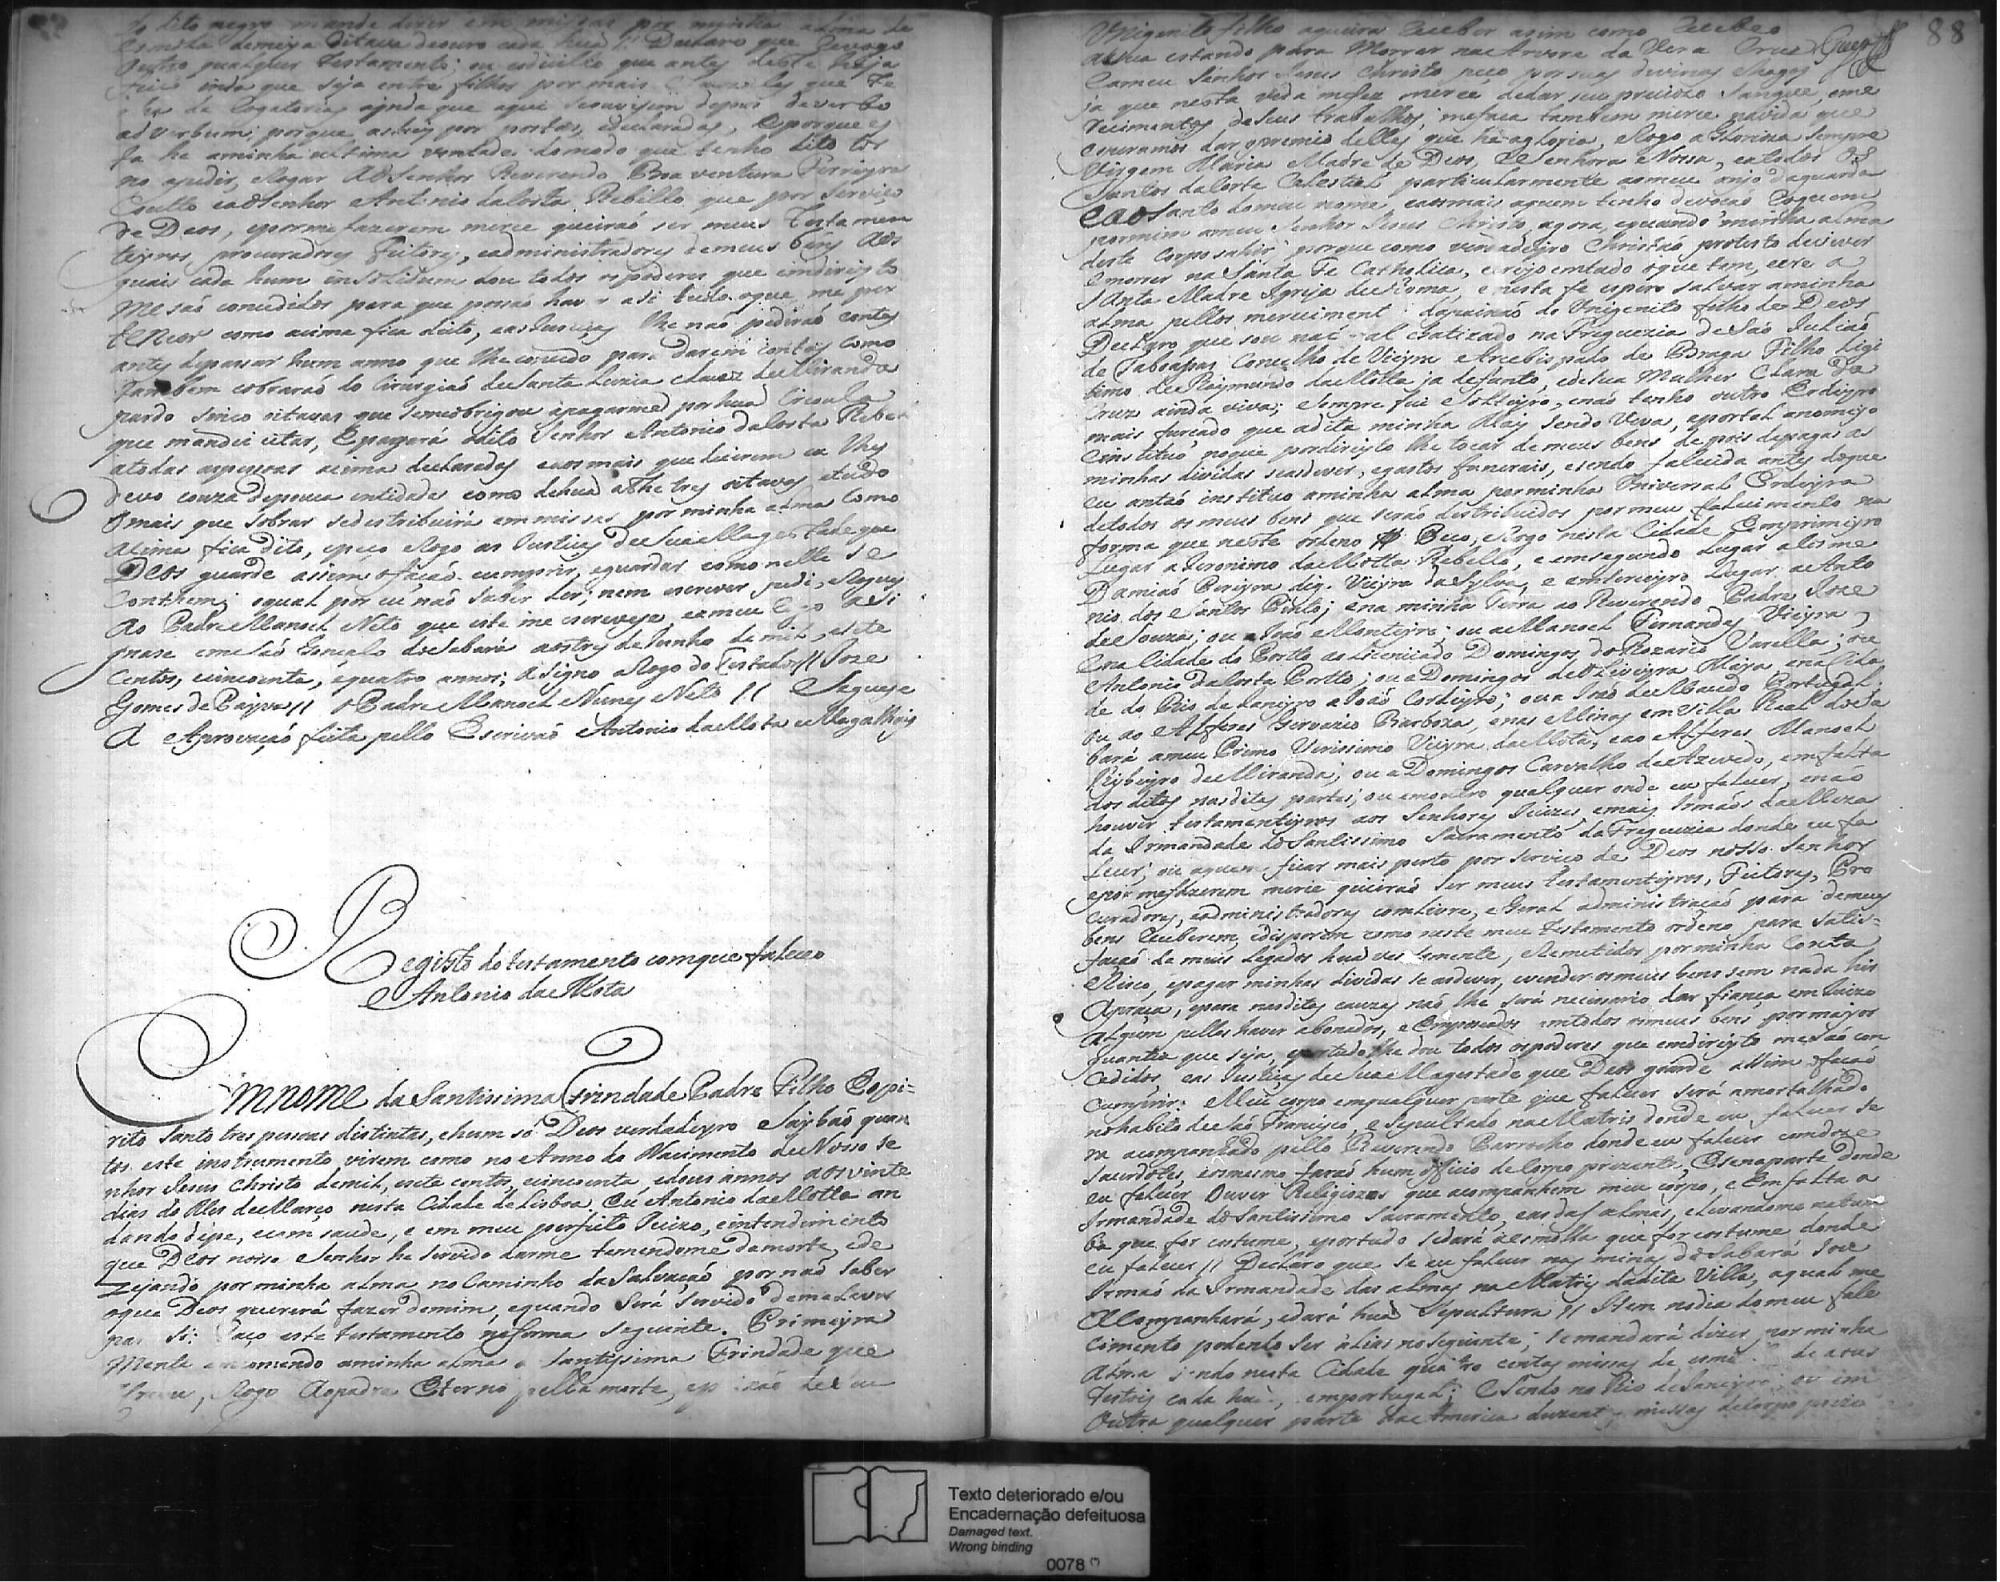 dito negro mande dizer em missas por minha alma de
esmolla demeya oitava deouro cada huã // Declaro que Revogo
outro qualquer testamento; ou codicillo que antes deste haja
feito inda que seja entre filhos por mais Clauzulas que te
de Rogatorias ainda que aqui deverbo
adverbum; porque as hey por postas, edeclaradas, Eporque es
ta he aminha ultima vontade domodo que tenho dito tor
no apedir, eRogar AoSenhor Reverendo Boaventura Ferreyra
Coutto eaoSenhor Antonio daCosta Rebello que por serviço
de Deos, epormefazerem merce queiraõ ser meus Testamen
teyros, procuradores Feitores, eadministradores demeus bens aos
quais cada hum insolidum dou todos os poderes que emdireyto
me saõ concedidos para que possaõ haver asi tudo oque me per
tencer como acima fica dito, easJustiças lhe naõ pediraõ contas
antes depassar hum anno que lhe concedo para darem contas como
tambem cobraraõ do Cirurgiaõ deSanta Luzia deMiranda
pardo sinco oitavas que semeobrigou apagarme por hua Circula
que mandei citar, Epagará odito Senhor Antonio daCosta Rebel
atodas aspessoas acima declaradas eaosmais quedicerem eu lhes
devo couza depouca entidade como dehuã athe tres oitavas etudo
omais que sobrar sedestribuirá emmissas por minha alma como
acima fica dito, epeço eRogo as Justiças deSuaMagestade que
DEos guarde assim ofaçaõ cumprir, eguardar como nelle se
conthem; oqual por eu naõ saber ler; nem escrever pedi, eRoguey
ao Padre Manoel Neto que este me escrevese, eameu Rogo asi
gnase emSaõ Gonçalo doSabará aostres deJunho demil, esete
Centos, eincoenta, equatro annos; Asigno aRogo do Testador // Joze
Gomes dePayva // oPadre Manoel Nunes Neto // eSeguese
A Aprovaçaõ feita pello Escrivaõ Antonio daMota eMagalhaens
Registo do testamento comque faleceo
Antonio da Mota
EmNome da Santissima Trindade Padre Filho Espi=
rito Santo tres pessoas distintas, ehum só Deos verdadeyro Saybaõ quan
tos este instrumento virem como no Anno do Nacimento deNosso Se
nhor Jesus Christo demil, esete centos, eincoenta, edous annos aosvinte
dias do Mes deMarço nesta Cidade deLisboa. Eu Antonio daMotta an
dando depe, ecom saude, e em meu perfeito Juizo, eintendimento
que Deos nosso Senhor he servido darme temendome damorte, ede
zejando por minha alma no Caminho daSalvaçaõ por naõ saber
oque Deos quererá fazer demim, equando será servido demelevar
para si: Faço este testamento naforma seguinte. Primeyra
Mente encomendo aminha alma a Santissima Trindade que
Creou, eRogo Aopadre Eterno pella morte, epaixaõ deseu
88
Unigenito filho aqueira receber asim como Recebeo
aSua estando para Morrer naArvore da Vera Cruz
eameu Senhor Jesus Christo peço por suas divinas chagas
ja que nesta vida mefez merce dedar seu preciozo Sangue, eme
recimentos deSeus trabalhos, mefaça tambem merce navida que
esperamos dar opremio delles, que he agloria, eRogo aGlorioza Sempre
Virgem Maria Madre de Deos, eSenhora Nossa, eatodos OS
Santos daCorte Celestial particularmente aomeu anjo daguarda
EAOSanto domeu nome, eaosmais aquem tenho devoçaõ Roguem
pormim ameu Senhor Jesus Christo agora, equando minha alma
deste corpo sahir porque como verdadeyro Christaõ protesto deviver
emorrer na Santa Fé Catholica, ecrejo emtudo oque tem, ecre a
Santa Madre Igreja deRoma, enesta fé espero salvar aminha
alma pellos merecimentos dapaixaõ do Unigenito filho deDEOS
Declaro que sou natural ebatizado na Freguezia deSaõ Juliaõ
de Taboaças Concelho deVieyra eArcebispado de Braga Filho Legi
timo deRaymundo daMotta ja defunto, edeSua Mulher Clara Da
Cruz ainda viva; eSempre fui eSolteyro, enaõ tenho outro Erdeyro
mais forcado que adita minha May sendo Viva, eportal anomeyo
einstituo noque pordireyto lhe tocar demeus bens depois depagas as
minhas dividas seasdever, egastos funerais, esendo falecida antes doque
eu antaõ instituo aminha alma porminha Universal Erdeyra
detodos osmeus bens que seraõ distribuidos pormeu falecimento na
forma que neste ordeno // Peço, eRogo nesta Cidade Emprimeyro
Lugar aJeronimo daMotta Rebello, e emsegundo Lugar aCosme
Damiaõ Pereyra dig. Vieyra daSylva, e emterceyro Lugar aAnto
nio dos Santos Pinto; ena minha Terra ao Reverendo Padre Joze
deSouza; ou aJoaõ Monteyro; ou aManoel Fernandes Vieyra,
Ena Cidade do Porto aoLicenciado Domingos doRozario Varella; ou
Antonio daCosta Portto; ou aDomingos deOliveyra Maya, enaCida
de do Rio deJaneyro aJoaõ Cordeyro; ou a Joaõ deMacedo Portugal
ou ao Alferes Gervazio Barboza, enas Minas em Villa Real doSa
bará ameu Primo Verissimo Vieyra daMota, eao Alferes Manoel
Ribeyro deMiranda; ou aDomingos Carvalho deAzevedo, emfalta
dos ditos nasditas partes; ou emoutro qualquer onde eu falecer, enaõ
houver testamenteyros aos Senhores Juizes, emais Irmaõs daMeza
da Irmandade doSantissimo Sacramento daFreguezia donde eu fa
lecer; ou aquem ficar mais perto por serviço de Deos nosso Senhor
epor mefazerem merce queiraõ ser meus testamenteyros, Feitores, Pro
curadores, eadministradores comLivre, eGeral administraçaõ para demeus
bens Receberem, edisporem como neste meu testamento ordeno para Satis=
façaõ de meus Legados huã vez somente, eRemetidos porminha Conta
eRisco, epagar minhas dividas seasdever, evender osmeus bens sem nada hir
Apraça, epara nasditas couzas naõ lhe será necessario dar fiança emJuizo
Algum pellos haver abonados, e Empossados emtodos osmeus bens pormayor
quantia que seja, eportudo lhe dou todos ospoderes que emdireyto meSaõ con
cedidos, eas Justiças deSuaMagestade que Deos guarde assim ofaçaõ
cumprir. Meu corpo emqualquer parte que falecer será amortalhado
nohabito deSaõ Francisco, eSepultado naMatris donde eu falecer se
rá acompanhado pello Reverendo Parrocho donde eu falecer comdoze
Sacerdotes, eomesmo faraõ hum officio deCorpo prezente, Esenaparte donde
eu falecer Ouver Religiozos que acompanhem meu corpo, e Emfalta a
Irmandade doSantissimo Sacramento, eas dasalmas, elevandome natum
ba que for costume, eportudo sedará aesmolla que forcostume donde
eu falecer // Declaro que se eu falecer nas minas doSabará Sou
Irmaõ da Irmandade das almas na Matris dadita Villa, aqual me
Acompanhará, edará huã Sepultura // Item nodia domeu fale
cimento podendo ser aliás noseguinte; semandará dizer por minha
Alma sendo nesta Cidade quatro centas missas de esmola de a tus
testois cada huã, emportugal; ESendo no Rio deJaneyro; ou em
Outra qualquer parte daAmerica duzentas missas decorpo preze
Texto deteriorado e/ou
Encadernação defeituosa
Damaged text.
Wrong binding
0078 (*)